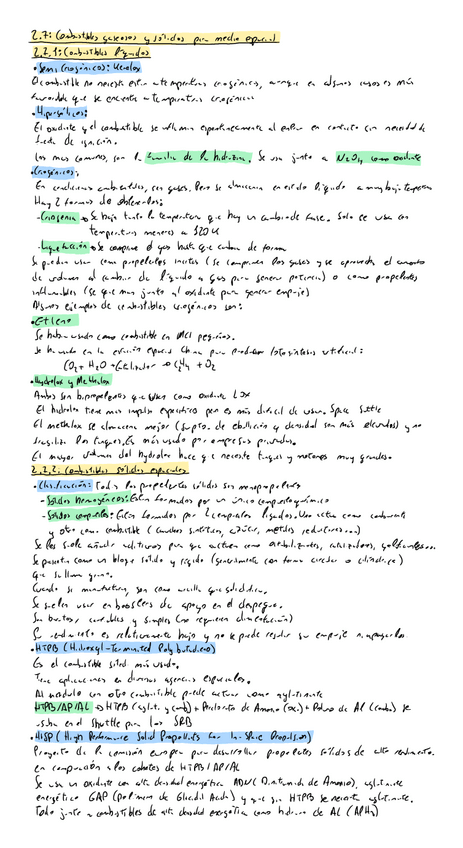 2.2: Combustibles gaseosos y sólidos para medio espacial
2.2.1: Combustibles líquidos
•Semi Criogénicos: Kerolox
El combustible no necesita estar a temperaturas criogénicas, aunque en algunos casos es más
favorable que se encuentre a temperaturas criogénicas
•Hipergólicos:
El oxidante y el combustible se inflaman espontáneamente al entrar en contacto sin necesidad de
fuente de ignición.
Los mas comunes, son la familia de la hidrazina. Se usa junto a N₂O₄ como oxidante
•Criogénicos:
En condiciones ambientales, son gases. Pero se almacenan en estado líquido a muy baja temperatura
Hay 2 formas de obtenerlos:
-Criogenia → Se baja tanto la temperatura que hay un cambio de fase. Solo se usa con
temperaturas menores a 120K
-Licuefacción → Se comprime el gas hasta que cambia de forma
Se pueden usar como propelentes inertes (se comprimen los gases y se aprovecha el aumento
de volumen al cambiar de líquido a gas para generar potencia) o como propelentes
inflamables (se queman junto al oxidante para generar empuje)
Algunos ejemplos de combustibles criogénicos son:
•Etileno
Se ha usado como combustible en MCI pequeños.
Se ha usado en la estación espacial China para producir fotosíntesis artificial:
CO₂ + H₂O + Catalizador → C₂H₄ + O₂
•Hydrolox y Methalox
Ambos son bipropelentes que usan como oxidante LOX
El hidrolox tiene mas impulso específico pero es más difícil de usar. Space Shuttle
El methalox se almacena mejor (su pto. de ebullición y densidad son más elevados) y no
fragiliza los tanques. Es más usado por empresas privadas.
El mayor volumen del hydrolox hace que necesite tanques y motores muy grandes.
2.2.2: Combustibles sólidos espaciales
•Clasificación: Todos los propelentes sólidos son monopropelentes
-Sólidos homogéneos: Están formados por un único compuesto químico
-Sólidos compuestos: Están formados por 2 compuestos ligados. Uno actua como comburente
y otro como combustible (cauchos sintéticos, azúcar, metales reductores...)
Se les suele añadir aditivos para que actúen como estabilizantes, catalizadores, gelificantes...
Se presentan como un bloque sólido y rígido (generalmente con forma circular o cilíndrica)
que se llama grano.
Cuando se manufactura, son como arcilla que se solidifica.
Se suelen usar en boosters de apoyo en el despegue.
Son baratos, rentables y simples (no requieren alimentación)
Su rendimiento es relativamente bajo y no se puede regular su empuje ni apagarlos.
•HTPB (Hidroxyl-Terminated Polybutadieno)
Es el combustible sólido más usado.
Tiene aplicaciones en diversas agencias espaciales.
Al mezclarlo con otro combustible puede actuar como aglutinante
HTPB/AP/AL → HTPB (aglut. y comb) + Perclorato de Amonio (oxi.) + Polvo de Al (comb) se
usaba en el Shuttle para los SRB
•HISP (High Performance Solid Propellants for In-Space Propulsion)
Proyecto de la comisión europea para desarrollar propelentes sólidos de alto rendimiento.
en comparación a los cohetes de HTPB/AP/Al
Se usa un oxidante con alta densidad energética ADN (Dinitramida de Amonio), aglutinante
energético GAP (polímero de Glicidil Acida) y que sin HTPB se necesita aglutinante.
Todo junto a combustibles de alta densidad energética como hidruro de Al (AlH₃)